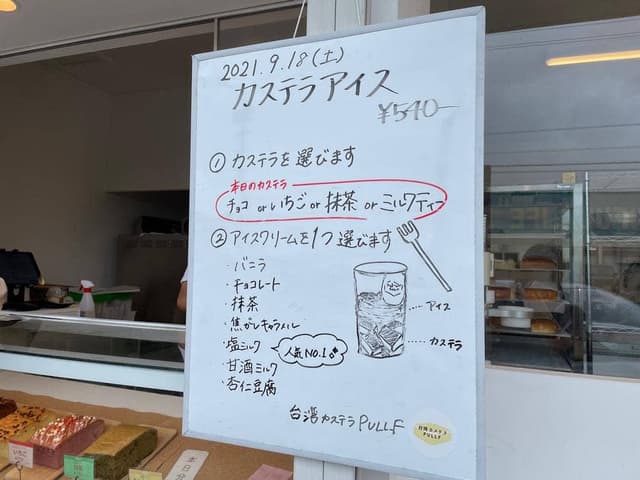 2021.9.18(土)
カステラアイス
¥540-
① カステラを選びます
本日のカステラ
チョコ or いちご or 抹茶 or ミルクティー
② アイスクリームを1つ選びます
・バニラ
・チョコレート
・抹茶
・焦がしキャラメル
・塩ミルク
人気NO.1
・甘酒ミルク
・杏仁豆腐
アイス
カステラ
台湾カステラPULLF
台湾カステラ
PULLF
いちご
本日分